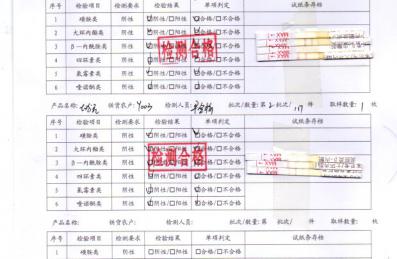 序号 检验项目 检测要求 检验结果 单项判定 试纸条存档
1 磺胺类 阴性 ☑阴性/□阳性 ☑合格/□不合格
2 大环内酯类 阴性 ☑阴性/□阳性 ☑合格/□不合格
3 β-内酰胺类 阴性 ☑阴性/□阳性 ☑合格/□不合格
4 四环素类 阴性 ☑阴性/□阳性 ☑合格/□不合格
5 氟苯素类 阴性 ☑阴性/□阳性 ☑合格/□不合格
6 喹诺酮类 阴性 ☑阴性/□阳性 ☑合格/□不合格
检测合格
产品名称: 供货农户: Y003 检测人员: 批次/数量:第2批次/ 117 件 取样数量: 1 枚
序号 检验项目 检测要求 检验结果 单项判定 试纸条存档
1 磺胺类 阴性 ☑阴性/□阳性 ☑合格/□不合格
2 大环内酯类 阴性 ☑阴性/□阳性 ☑合格/□不合格
3 β-内酰胺类 阴性 ☑阴性/□阳性 ☑合格/□不合格
4 四环素类 阴性 ☑阴性/□阳性 ☑合格/□不合格
5 氟苯素类 阴性 ☑阴性/□阳性 ☑合格/□不合格
6 喹诺酮类 阴性 ☑阴性/□阳性 ☑合格/□不合格
检测合格
产品名称: 供货农户: 检测人员: 批次/数量:第 批次/ 件 取样数量: 枚
序号 检验项目 检测要求 检验结果 单项判定 试纸条存档
1 磺胺类 阴性 □阴性/□阳性 □合格/□不合格